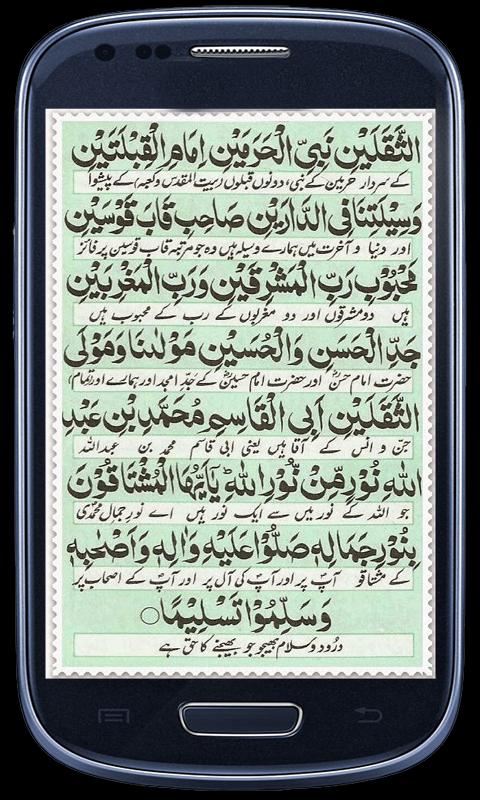 الثَّقَلَيْنِ نَبِيِّ الْحَرَمَيْنِ اِمَامِ الْقِبْلَتَيْنِ
کے سردار حرمین کے نبی، دونوں قبلوں (بیت المقدس و کعبہ) کے پیشوا
وَسِيْلَتِنَا فِي الدَّارَيْنِ صَاحِبِ قَابَ قَوْسَيْنِ
اور دنیا و آخرت میں ہمارے وسیلہ ہیں وہ جو مرتبہ قاب قوسین پر فائز
مَحْبُوْبِ رَبِّ الْمَشْرِقَيْنِ وَرَبِّ الْمَغْرِبَيْنِ
ہیں دو مشرقوں اور دو مغربوں کے رب کے محبوب ہیں
جَدِّ الْحَسَنِ وَالْحُسَيْنِ مَوْلٰنَا وَمَوْلَى
حضرت امام حسنؓ اور حضرت امام حسینؓ کے جدِّ امجد اور ہمارے اور (تمام)
الثَّقَلَيْنِ اَبِى الْقَاسِمِ مُحَمَّدِ بْنِ عَبْدِ
جن و انس کے آقا ہیں یعنی ابی قاسم محمد بن عبداللہ
اللهِ نُوْرٍ مِّنْ نُّوْرِ اللهِ ؕ يٰۤاَيُّهَا الْمُشْتَاقُوْنَ
جو اللہ کے نور میں سے ایک نور ہیں اے نورِ جمالِ محمدی
بِنُوْرِ جَمَالِهٖ صَلُّوْا عَلَيْهِ وَاٰلِهٖ وَاَصْحٰبِهٖ
کے مشتاقو آپؐ پر اور آپؐ کی آل پر اور آپؐ کے اصحاب پر
وَسَلِّمُوْا تَسْلِيْمًا ○
درود و سلام بھیجو جو بھیجنے کا حق ہے